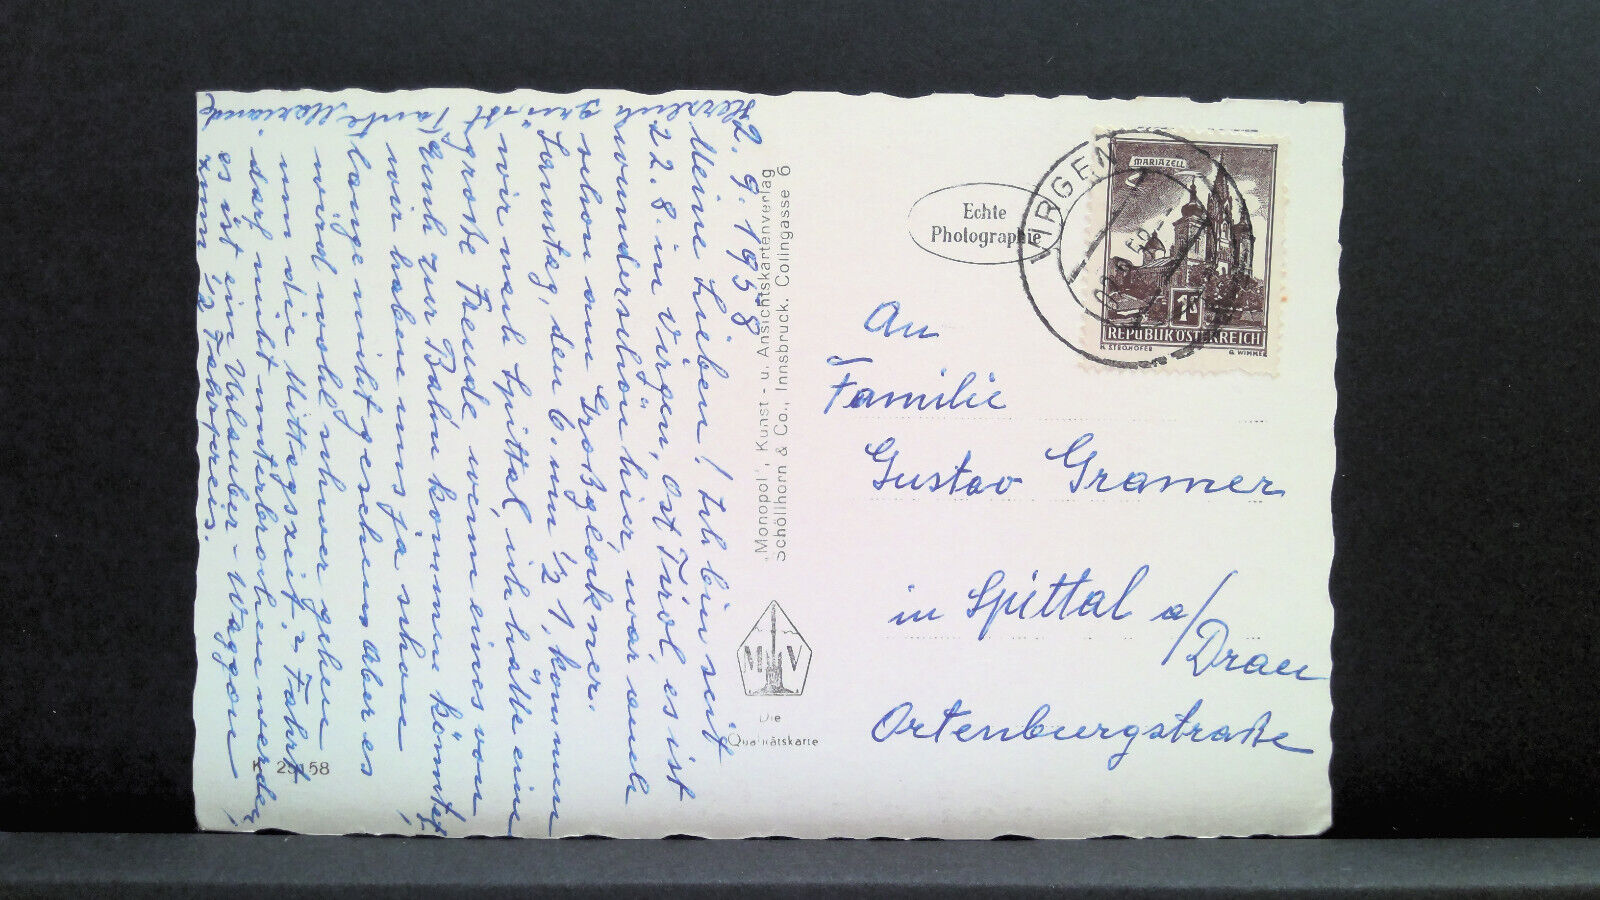 2. 9. 1958
Meine Lieben! Ich bin seit
22. 8. in Virgen, Ost Tirol, es ist
wunderschön hier, war auch
schon am Großglockner.
Samstag, den 6. um ½ 1, kommen
wir nach Spittal, ich hätte eine
große Freude wenn eines von
Euch zur Bahn kommen könntet,
wir haben uns ja schon
lange nicht gesehen aber es
wird wohl schwer gehen
um die Mittagszeit. Fahrt
darf nicht unterbrochen werden,
es ist ein Urlauber-Waggon
zum ½ Fahrpreis.
Herzlich grüsst Tante Marianne
„Monopol", Kunst- u. Ansichtskartenverlag
Schöllhorn & Co., Innsbruck, Colingasse 6
M V
Die
Qualitätskarte
K 25158
Echte
Photographie
VIRGEN
MARIAZELL
1S
REPUBLIK ÖSTERREICH
H. STROHOFER
G. WIMMER
An
Familie
Gustav Gramer
in Spittal a/
Drau
Ortenburgstraße